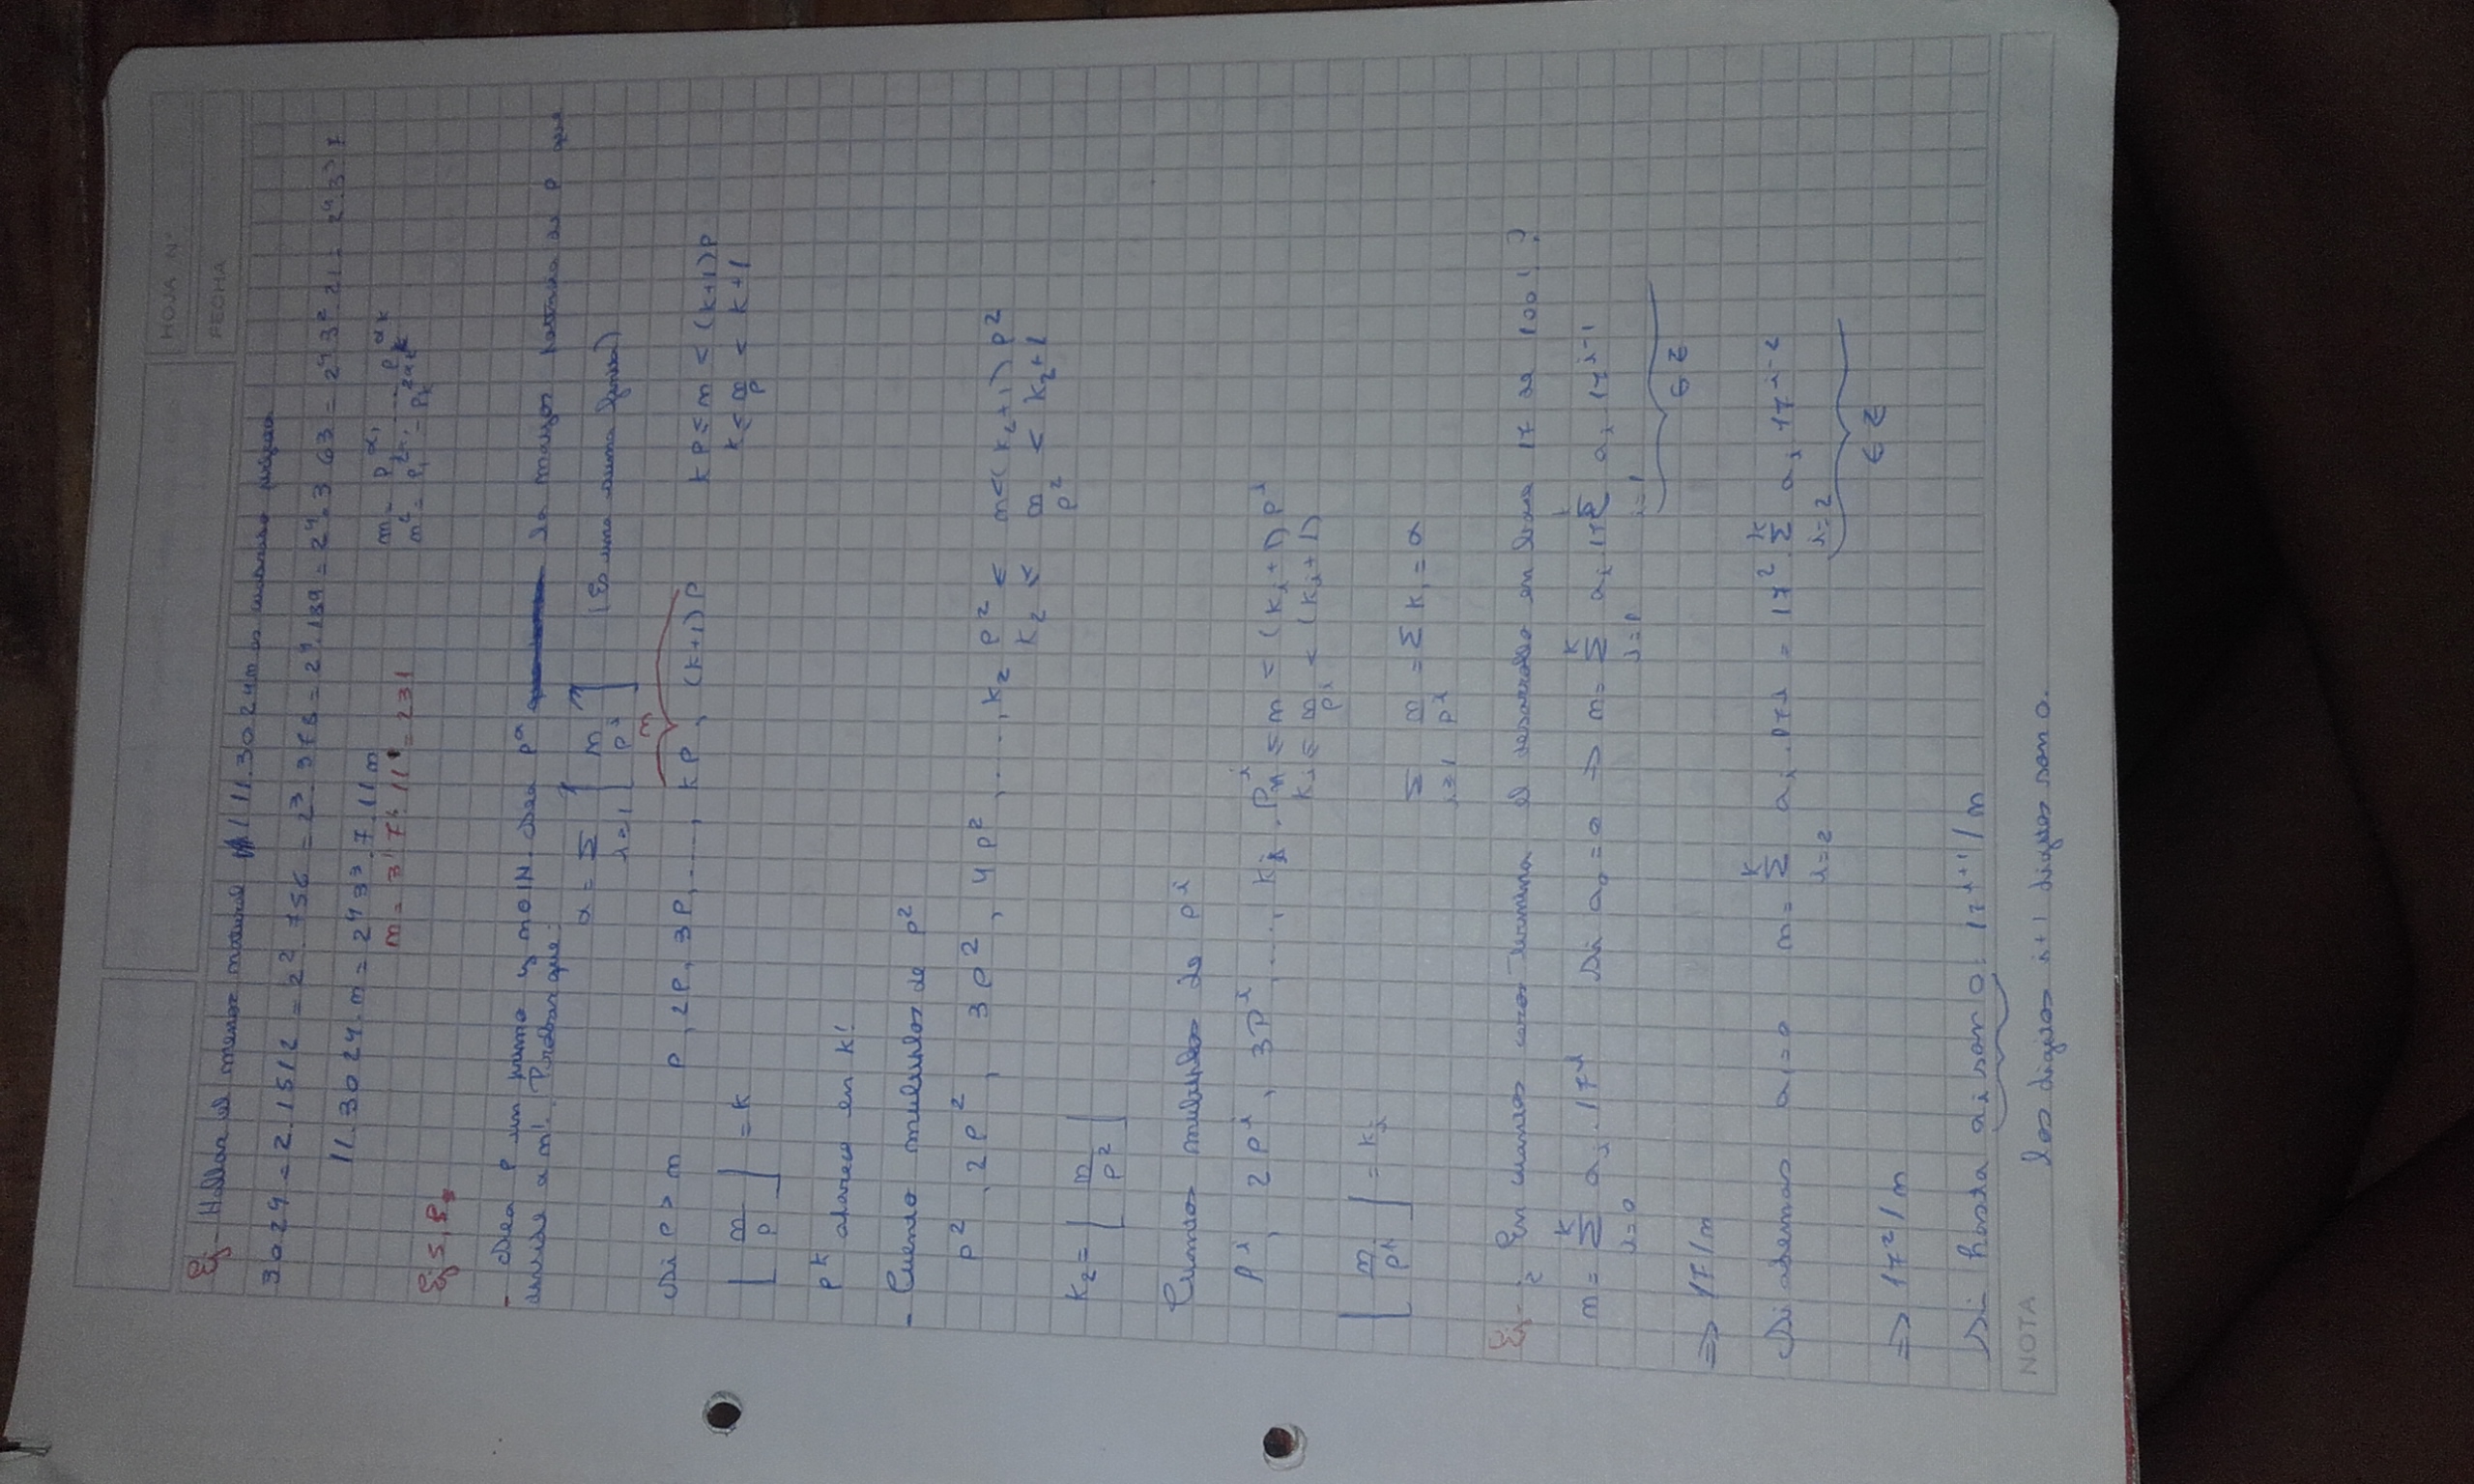 HOJA N°
FECHA
Ej - Hallar el menor natural / 11.3024m es cuadrado
3024 = 2.1512 = 2².756 = 2³.378 = 2⁴.189 = 2⁴.3 63 = 2⁴3².21 = 2⁴.3³7
11.3024.m = 2⁴3³.7.11m
m = 3¹7¹.11¹ = 231
m = P₁^α₁ ... P_k^αk
m² = P₁^2α₁ - P_k^2αk
Ej 5, P.
- Sea P un primo y n∈IN. Sea P^α la mayor potencia de P que
divide a n!. Probar que:
α = Σ i=1 [n/p^i] (Es una suma finita)
n
Si P > n P, 2P, 3P, ...., kP, (k+1)P kP ≤ n < (k+1)P
⌊n/p⌋ = k k ≤ n/p < k+1
P^k aparece en k!
- Cuento multiplos de P²
P², 2P², 3P², 4P², ...., k₂ P² ≤ n < (k₂+1)P²
k₂ ≤ n/p² < k₂+1
k₂ = ⌊n/p²⌋
Cuantos multiplos de P^i
P^i, 2P^i, 3P^i, ..., k_i.P^i ≤ n < (k_i+1)P^i
k_i ≤ n/p^i < (k_i+1)
⌊n/p^i⌋ = k_i
Σ i≥1 n/p^i = Σ k_i = α
Ej - ¿ En cuantos ceros termina el desarrollo en base 17 de 100! ?
n = Σ^k i=0 a_i.17^i Si a₀ = 0 ⇒ n = Σ^k i=1 a_i 17 Σ i=1 a_i 17^i-1
∈ Z
⇒ 17/n
Si ademas a₁ = 0 n = Σ^k i=2 a_i.17^i = 17².Σ^k i=2 a_i 17^i-2
∈ Z
⇒ 17²/n
Si hasta a_i son 0. 17^i+1/n
NOTA
los digitos i+1 digitos son 0.